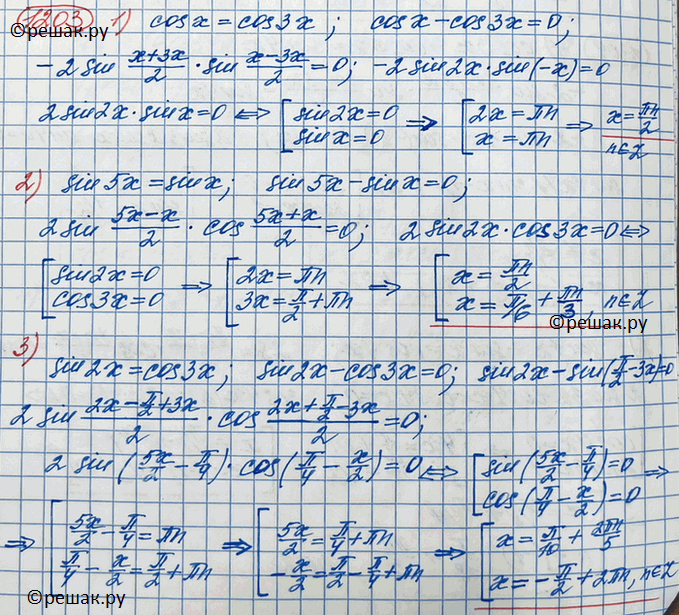 ©решак.ру
1203 1) cos x = cos 3x ; cos x - cos 3x = 0 ;
-2 sin (x+3x)/2 · sin (x-3x)/2 = 0 ; -2 sin 2x · sin(-x) = 0
2 sin 2x · sin x = 0 ⇔ [ sin 2x = 0 ; sin x = 0 ⇒ [ 2x = πn ; x = πn ⇒ x = πn/2 n∈Z
2) sin 5x = sin x ; sin 5x - sin x = 0 ;
2 sin (5x-x)/2 · cos (5x+x)/2 = 0 ; 2 sin 2x · cos 3x = 0 ⇔
[ sin 2x = 0 ; cos 3x = 0 ⇒ [ 2x = πn ; 3x = π/2 + πn ⇒ [ x = πn/2 ; x = π/6 + πn/3 , n∈Z
©решак.ру
3) sin 2x = cos 3x ; sin 2x - cos 3x = 0 ; sin 2x - sin(π/2 - 3x) = 0
2 sin (2x - π/2 + 3x)/2 · cos (2x + π/2 - 3x)/2 = 0 ;
2 sin (5x/2 - π/4) · cos (π/4 - x/2) = 0 ⇔ [ sin (5x/2 - π/4) = 0 ; cos (π/4 - x/2) = 0 ⇒
⇒ [ 5x/2 - π/4 = πn ; π/4 - x/2 = π/2 + πn ⇒ [ 5x/2 = π/4 + πn ; -x/2 = π/2 - π/4 + πn ⇒ [ x = π/10 + 2πn/5 ; x = -π/2 + 2πn, n∈Z
©решак.ру